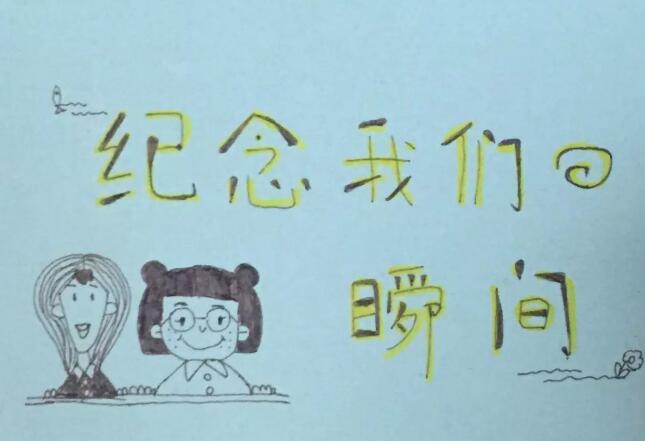 纪念我们の
瞬间